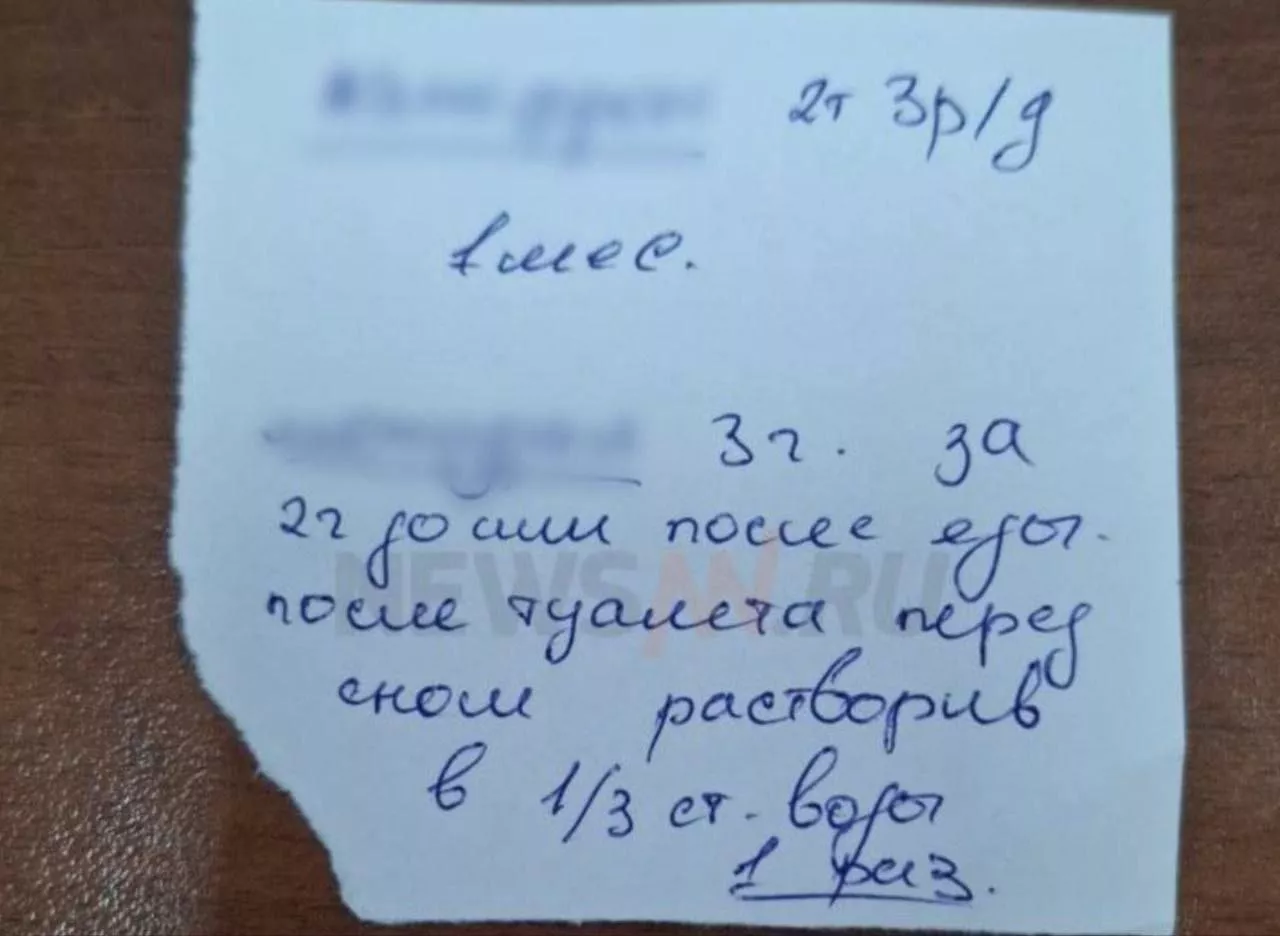 2т 3р/д
1 мес.
3 г. за
2ч до или после еды.
после туалета перед
сном растворив
в 1/3 ст. воды
1 раз.
NEWSAN.RU